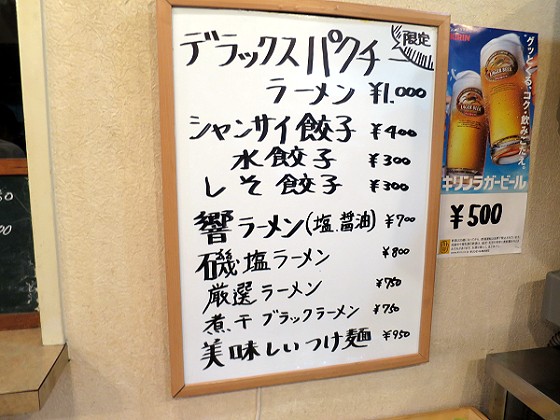 デラックスパクチー
限定
ラーメン ¥1.000
シャンサイ餃子 ¥400
水餃子 ¥300
しそ餃子 ¥300
響ラーメン(塩、醤油) ¥700
磯塩ラーメン ¥800
厳選ラーメン ¥750
煮干ブラックラーメン ¥750
美味しいつけ麺 ¥950
グッとくる、コク・飲みごたえ。
LAGER BEER
LAGER BEER
キリンラガービール
¥500